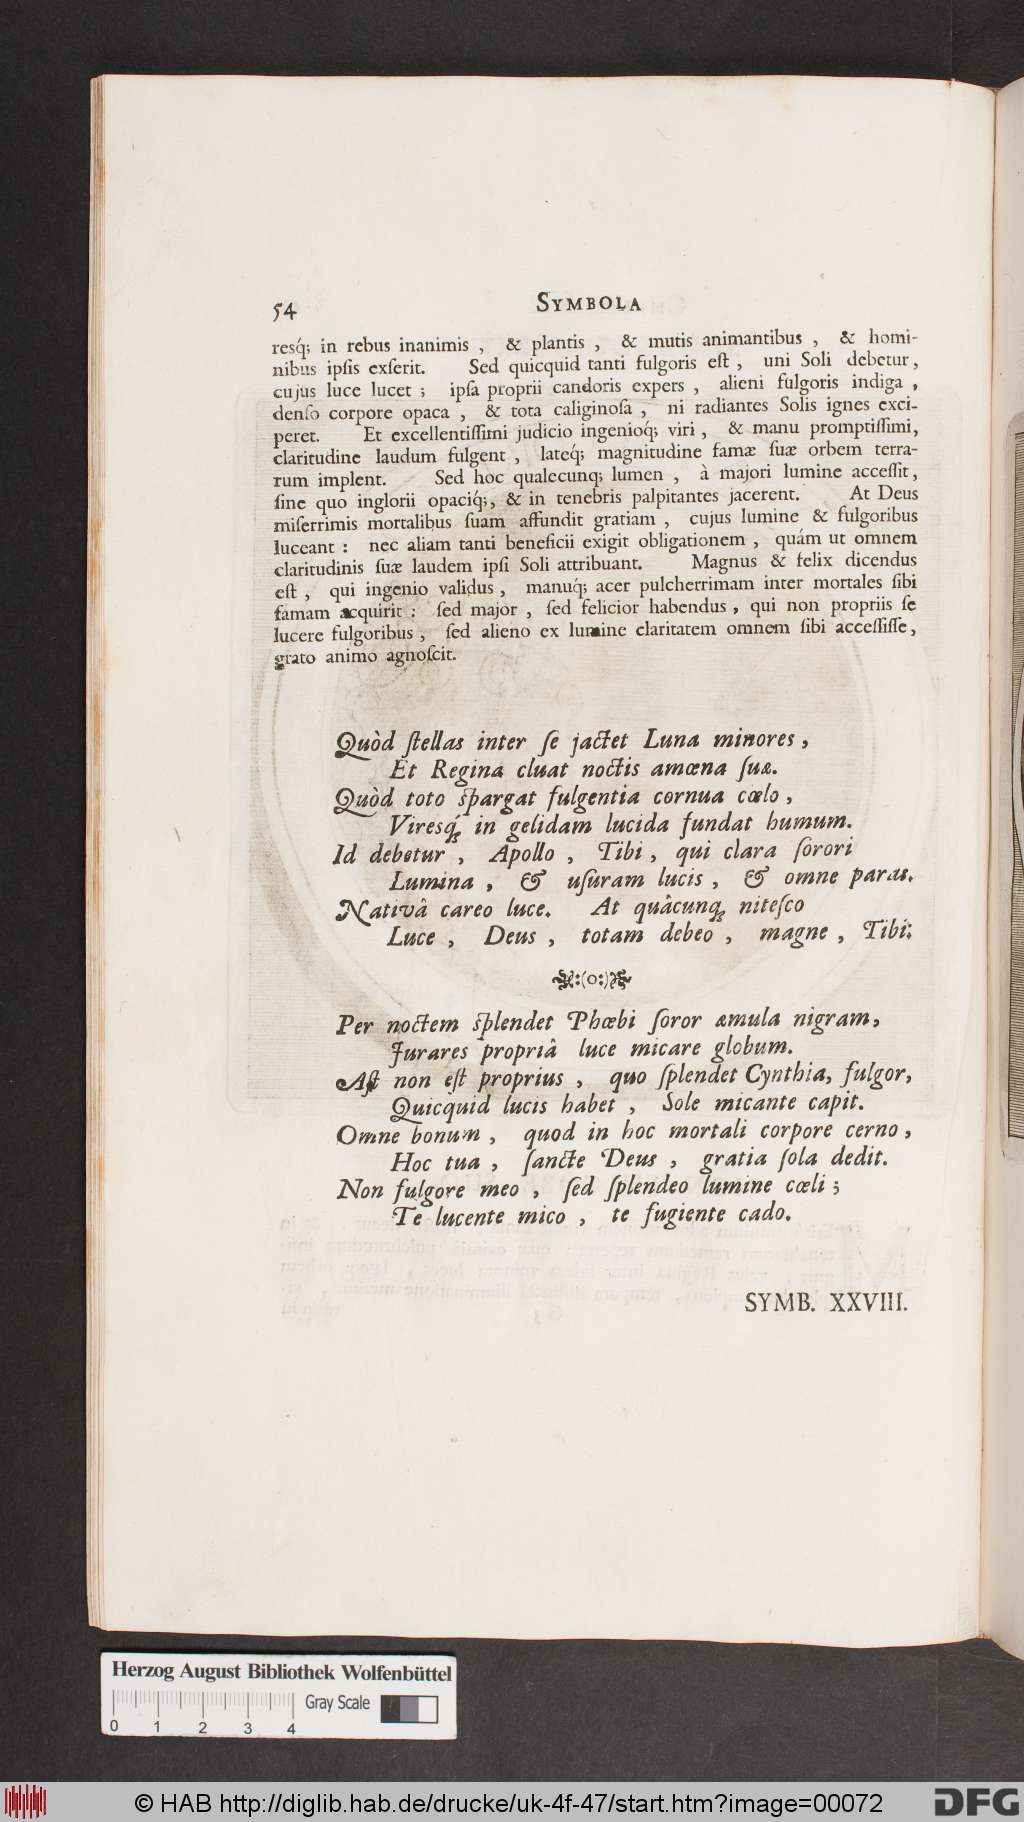 54 SYMBOLA
resq́; in rebus inanimis , & plantis , & mutis animantibus , & homi-
nibus ipſis exſerit. Sed quicquid tanti fulgoris eſt , uni Soli debetur,
cujus luce lucet ; ipſa proprii candoris expers , alieni fulgoris indiga ,
denſo corpore opaca , & tota caliginoſa , ni radiantes Solis ignes exci-
peret. Et excellentiſſimi judicio ingenioq́; viri , & manu promptiſſimi,
claritudine laudum fulgent , lateq́; magnitudine famæ ſuæ orbem terra-
rum implent. Sed hoc qualecunq; lumen , à majori lumine acceſſit,
ſine quo inglorii opaciq́;, & in tenebris palpitantes jacerent. At Deus
miſerrimis mortalibus ſuam affundit gratiam , cujus lumine & fulgoribus
luceant : nec aliam tanti beneficii exigit obligationem , quám ut omnem
claritudinis ſuæ laudem ipſi Soli attribuant. Magnus & felix dicendus
eſt , qui ingenio validus , manuq́; acer pulcherrimam inter mortales ſibi
famam acquirit : ſed major , ſed felicior habendus , qui non propriis ſe
lucere fulgoribus , ſed alieno ex lumine claritatem omnem ſibi acceſſiſſe,
grato animo agnoſcit.
Quòd ſtellas inter ſe jactet Luna minores ,
Et Regina cluat noctis amœna ſuæ.
Quòd toto ſpargat fulgentia cornua cœlo ,
Viresq́; in gelidam lucida fundat humum.
Id debetur , Apollo , Tibi , qui clara ſorori
Lumina , & uſuram lucis , & omne paras.
Nativâ careo luce. At quâcunq; niteſco
Luce , Deus , totam debeo , magne , Tibi;
:(o:)
Per noctem ſplendet Phœbi ſoror æmula nigram,
Jurares propriâ luce micare globum.
Aſt non eſt proprius , quo ſplendet Cynthia, fulgor,
Quicquid lucis habet , Sole micante capit.
Omne bonum , quod in hoc mortali corpore cerno ,
Hoc tua , ſancte Deus , gratia ſola dedit.
Non fulgore meo , ſed ſplendeo lumine cœli ;
Te lucente mico , te fugiente cado.
SYMB. XXVIII.
Herzog August Bibliothek Wolfenbüttel
Gray Scale
0 1 2 3 4
© HAB http://diglib.hab.de/drucke/uk-4f-47/start.htm?image=00072
DFG